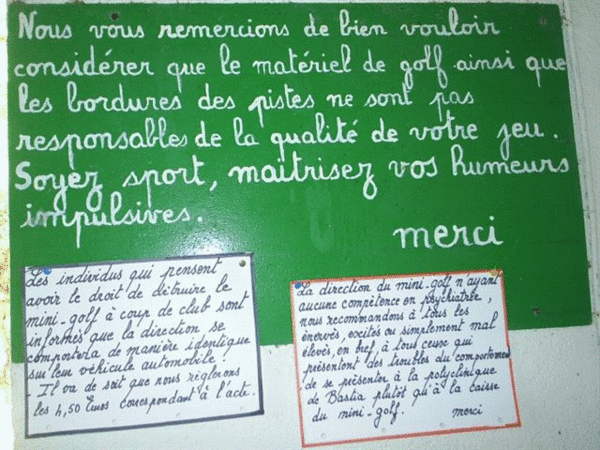 Nous vous remercions de bien vouloir
considérer que le matériel de golf ainsi que
les bordures des pistes ne sont pas
responsables de la qualité de votre jeu.
Soyez sport, maitrisez vos humeurs
impulsives.
merci
Les individus qui pensent
avoir le droit de détruire le
mini-golf à coup de club sont
informés que la direction se
comportera de manière identique
sur leur véhicule automobile.
- Il va de soit que nous règlerons
les 4,50 Euros correspondant à l'acte.
La direction du mini-golf n'ayant
aucune compétence en psychiatrie,
nous recommandons à tous les
énervés, excités ou simplement mal
élevés, en bref, à tous ceux qui
présentent des troubles du comportement
de se présenter à la polyclinique
de Bastia plutôt qu'à la caisse
du mini-golf. merci